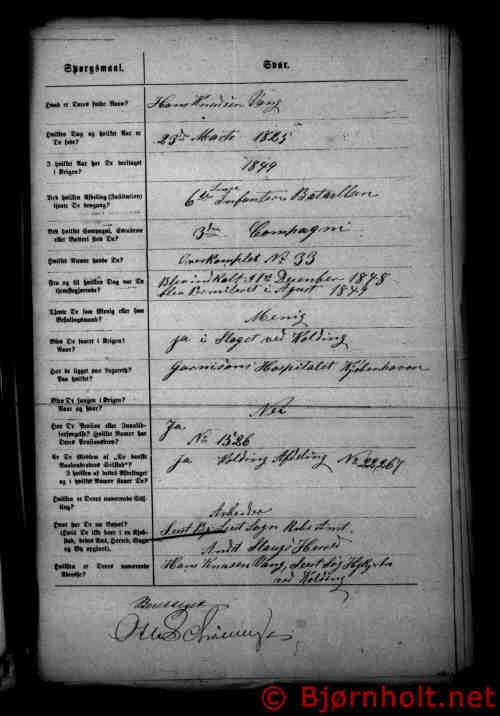 Spørgsmaal. Svar.
Hvad er Deres fulde Navn? Hans Knudsen Vang
Hvilken Dag og hvilket Aar er De født? 23de Marts 1825
I hvilket Aar har De deeltaget i Krigen? 1849
Ved hvilken Afdeling (Institution) tjente De dengang? 6te Linje Infanteri Bataillon
Ved hvilket Compagni, Escadron eller Batteri stod De? 3die Compagni
Hvilket Numer havde De? Overkomplet No 33
Fra og til hvilken Dag var De tjenstgjørende? Blev indkalt December 1848
blev i August 1849
Tjente De som Menig eller som Befalingsmand? Menig
Blev De saaret i Krigen?
Naar? ja i Slaget ved Kolding
Har De ligget paa Lazareth?
Paa hvilket? Garnisons Hospitalet Kjøbenhavn
Blev De fangen i Krigen?
Naar og hvor? Nei
Har De Pension eller Invalideforsørgelse? Hvilket Numer har Deres Pensionsbrev? Ja
No 1526
Er De Medlem af „De danske Vaabenbrødres Selskab"?
I hvilken af dettes Afdelinger og i hvilket Numer staaer De? ja Kolding Afdeling No 22,267
Hvilken er Deres nuværende Stilling? Arbeider
Hvor har De nu Bopæl?
(Hvis De ikke boer i en Kjøbstad, bedes Amt, Herred, Sogn og By opgivet). Seest By Seest Sogn Ribe Amt
Andst Slaugs Herred
Hvilken er Deres nuværende Adresse? Hans Knusen Vang, Seest
ved Kolding
© Bjørnholt.net